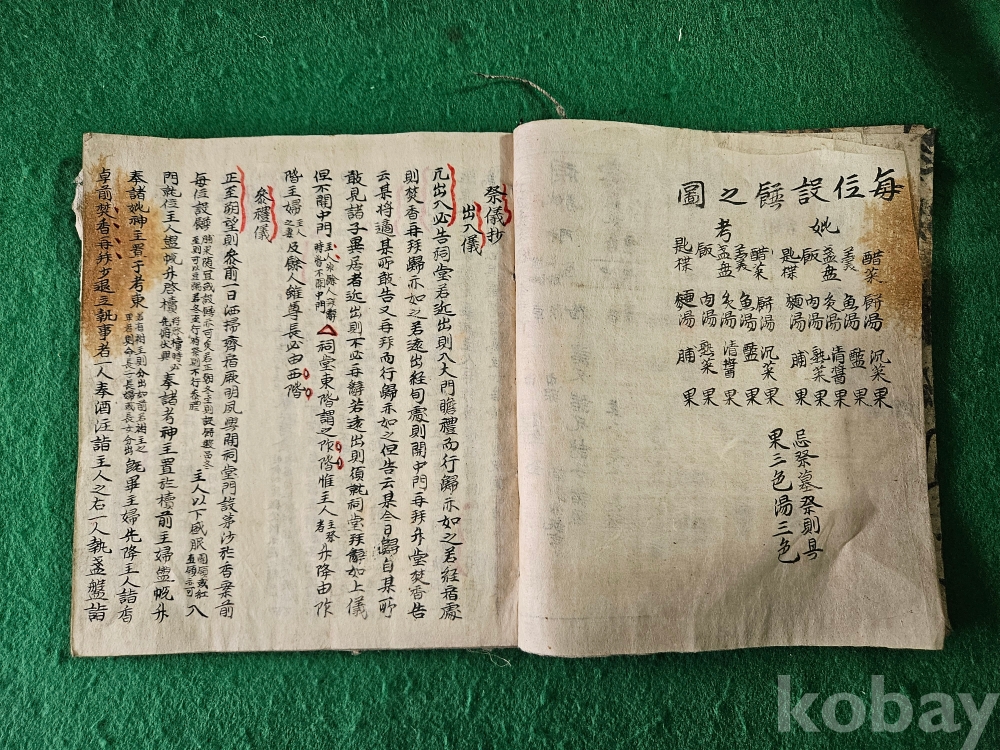 每位設饌之圖
妣 考
醋菜 羹 盞盤 飯 匙楪 醋菜 羹 盞盤 飯 匙楪
餠湯 魚湯 肉湯 麵湯 餠湯 魚湯 炙湯 肉湯 麵湯
沉菜 醢 清醬 熟菜 脯 沉菜 醢 清醬 熟菜 脯
果 果 果 果 果 果 果 果 果 果
忌祭墓祭則具
果三色湯三色
祭儀抄
出入儀
凡出入必告祠堂若近出則入大門瞻禮而行歸亦如之若經宿處
則焚香再拜歸亦如之若遠出經旬處則開中門再拜升堂焚香告
云某將適某所敢告又再拜而行歸亦如之但告云某今日歸自某所
敢見諸子異居者近出則不必每辭若遠出則須就祠堂拜辭如上儀
但不開中門 主人餘人 時皆不開中門 祠堂東階謂之阼階惟主人 主祭者 升降由阼
階主婦 主人之妻 及餘人雖尊長必由西階
參禮儀
正至朔望則參前一日洒掃齊宿厥明夙興開祠堂門設茅沙於香案前
每位設饌 主人以下盛服 入
門就位主人盥帨升啓櫝 奉諸考神主置於櫝前主婦盥帨升
奉諸妣神主置于考東 旣畢主婦先降主人詣香
卓前焚香再拜少退立執事者一人奉酒注詣主人之右一人執盞盤詣
kobay